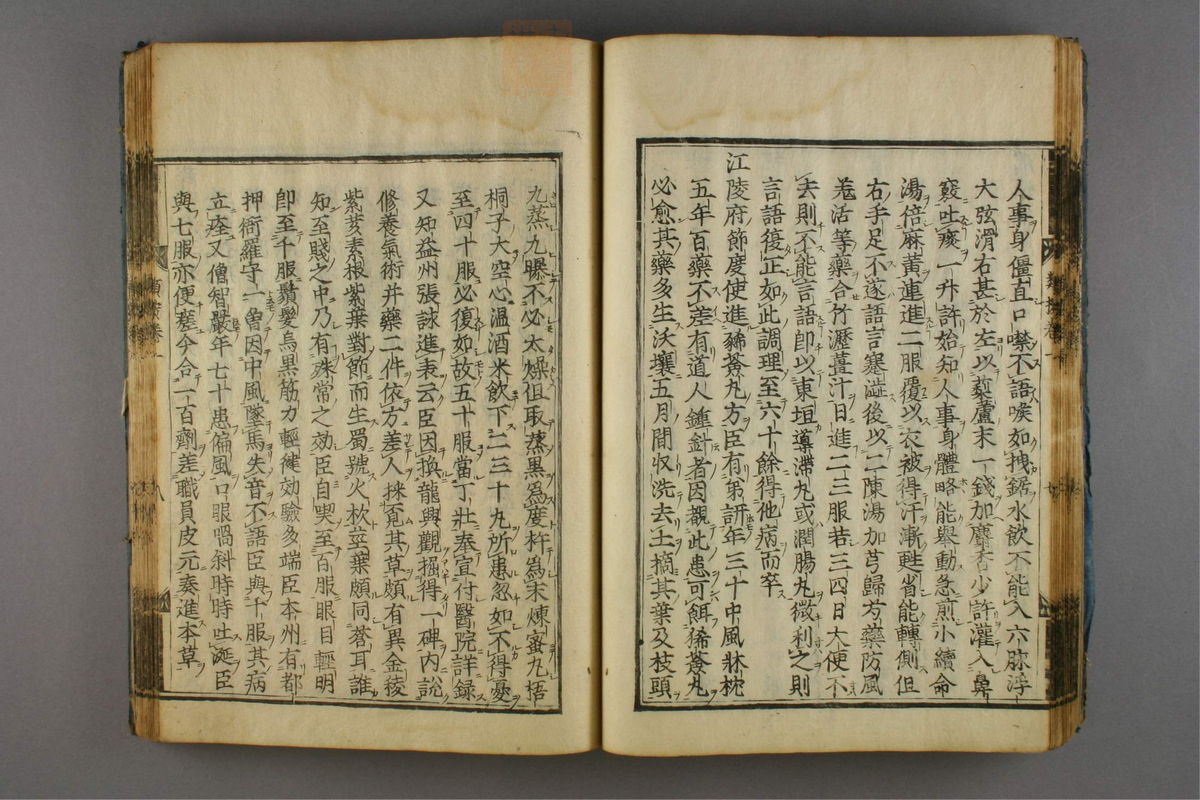 人事身僵直口噤不語喉如拽鋸水飲不能入六脉浮
大弦滑右甚於左以藜蘆末一錢加麝香少許灌入鼻
竅吐痰一升許始知人事身體略能舉動急煎小續命
湯倍麻黃連進二服覆以衣被得汗漸甦省能轉側但
右手足不遂語言蹇澁後以二陳湯加芎歸芍藥防風
羗活等藥合竹瀝薑汁日進二三服若三四日大便不
去則不能言語卽以東垣導滯丸或潤腸丸微利之則
言語復正如此調理至六十餘得他病而卒
江陵府節度使進豨薟丸方臣有弟訮年三十中風牀枕
五年百藥不差有道人鍾針者因覩此患可餌豨薟丸
必愈其藥多生沃壤五月間収洗去土摘其葉及枝頭
九蒸九曝不必太燥但取蒸黑爲度杵爲末煉蜜丸梧
桐子大空心溫酒米飲下二三十丸所患忽加不得憂
至四十服必復如故五十服當丁壯奉宣付醫院詳録
又知益州張詠進表云臣因換龍興觀掘得一碑內說
修養氣術并藥二件依方差人採覓其草頗有異金稜
紫荄素根紫葉對節而生蜀號火杴莖葉頗同蒼耳誰
知至賤之中乃有殊常之効臣自喫至百服眼目輕明
卽至千服鬚髮烏黑筋力輕健効驗多端臣本州有都
押衙羅守一曽因中風墜馬失音不語臣與十服其病
立痊又僧智嚴年七十患偏風口眼喎斜時時吐涎臣
與七服亦便痊今合一百劑差職員皮元奏進本草